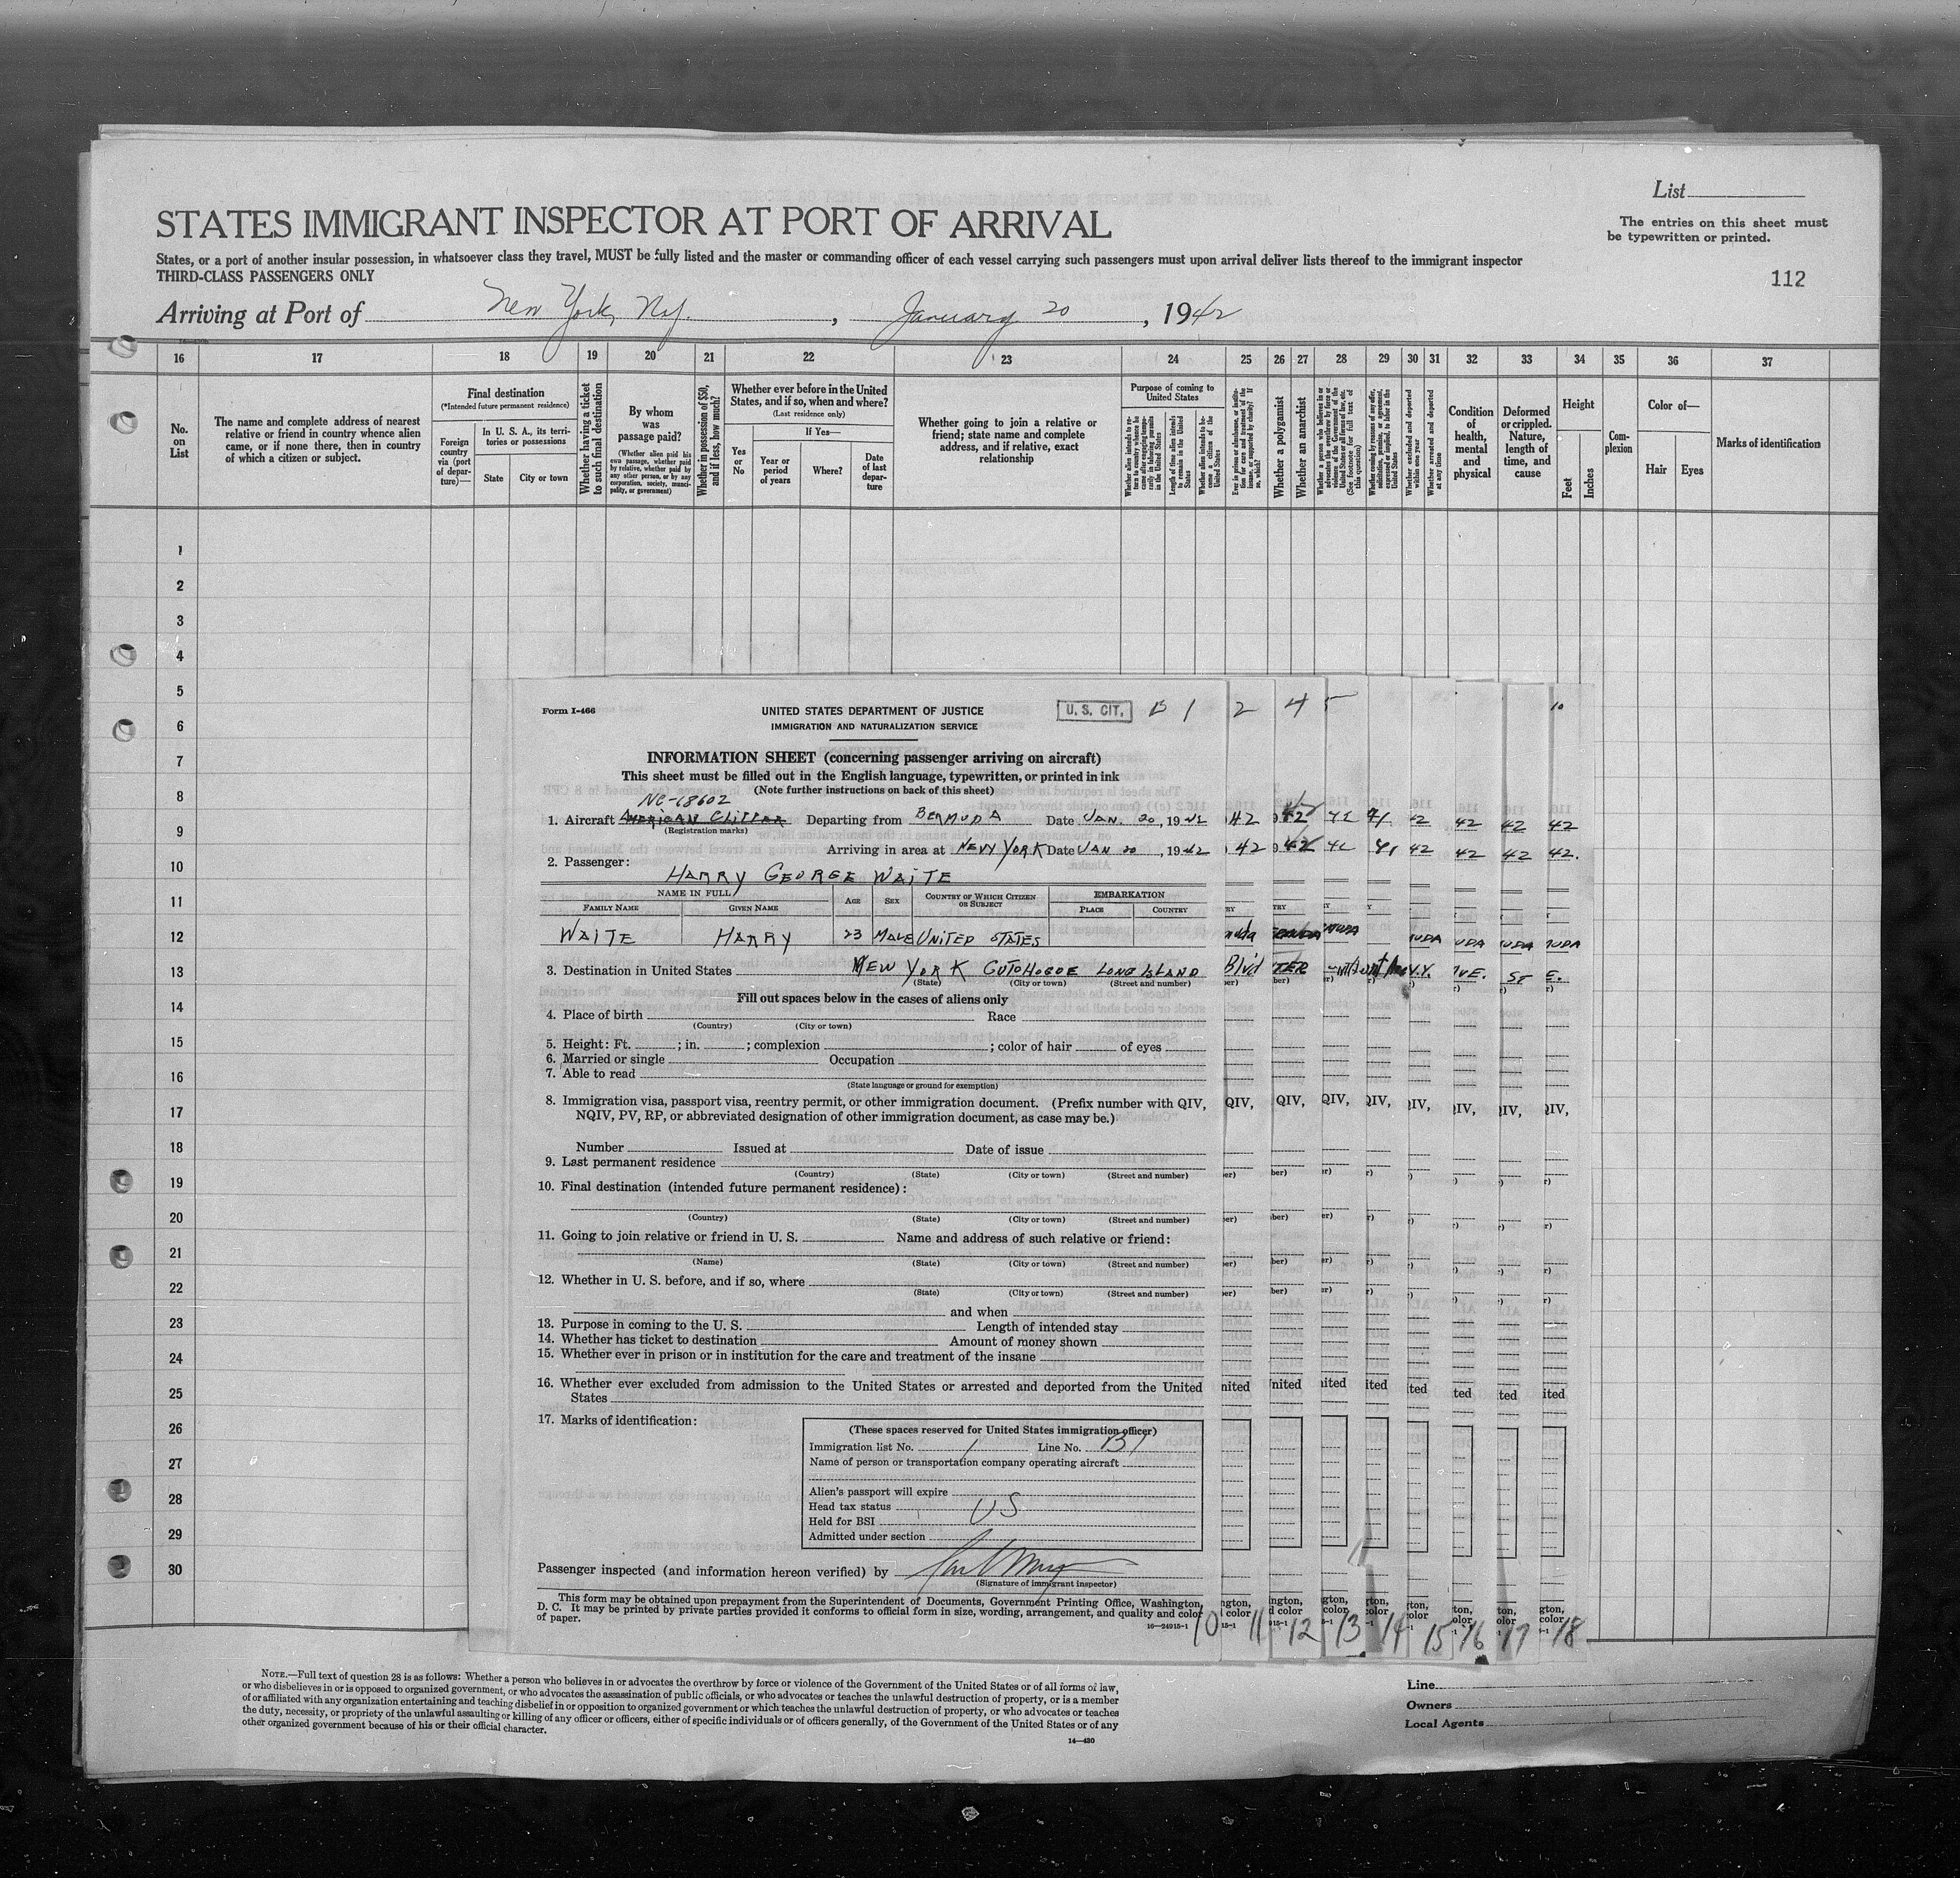 List
STATES IMMIGRANT INSPECTOR AT PORT OF ARRIVAL
The entries on this sheet must
be typewritten or printed.
States, or a port of another insular possession, in whatsoever class they travel, MUST be fully listed and the master or commanding officer of each vessel carrying such passengers must upon arrival deliver lists thereof to the immigrant inspector
THIRD-CLASS PASSENGERS ONLY
112
Arriving at Port of New York, N.Y. , January 20 , 1942
16 17 18 19 20 21 22 23 24 25 26 27 28 29 30 31 32 33 34 35 36 37
No. on List
The name and complete address of nearest relative or friend in country whence alien came, or if none there, then in country of which a citizen or subject.
Final destination
(*Intended future permanent residence)
Foreign country via (port of departure)—
In U. S. A., its territories or possessions
State
City or town
Whether having a ticket to such final destination
By whom was passage paid?
(Whether alien paid his own passage, whether paid by relative, whether paid by any other person, or by any corporation, society, municipality, or government)
Whether in possession of $50, and if less, how much?
Whether ever before in the United States, and if so, when and where?
(Last residence only)
Yes or No
If Yes—
Year or period of years
Where?
Date of last departure
Whether going to join a relative or friend; state name and complete address, and if relative, exact relationship
Purpose of coming to United States
Whether alien intends to return to country whence he came after engaging temporarily in laboring pursuits in the United States
Length of time alien intends to remain in the United States
Whether alien intends to become a citizen of the United States
Whether a polygamist
Whether an anarchist
Whether excluded and deported within one year
Whether arrested and deported at any time
Condition of health, mental and physical
Deformed or crippled. Nature, length of time, and cause
Height
Feet
Inches
Complexion
Color of—
Hair
Eyes
Marks of identification
1
2
3
4
5
6
7
8
9
10
11
12
13
14
15
16
17
18
19
20
21
22
23
24
25
26
27
28
29
30
Form I-466
UNITED STATES DEPARTMENT OF JUSTICE
IMMIGRATION AND NATURALIZATION SERVICE
U. S. CIT. B 1 2 4 5 10
INFORMATION SHEET (concerning passenger arriving on aircraft)
This sheet must be filled out in the English language, typewritten, or printed in ink
(Note further instructions on back of this sheet)
NC-18602
1. Aircraft AMERICAN CLIPPER Departing from BERMUDA Date JAN. 20, 1942
(Registration marks)
Arriving in area at NEW YORK Date JAN 20, 1942
2. Passenger:
HARRY GEORGE WAITE
NAME IN FULL
FAMILY NAME
GIVEN NAME
AGE
SEX
COUNTRY OF WHICH CITIZEN OR SUBJECT
EMBARKATION
PLACE
COUNTRY
WAITE HARRY 23 MALE UNITED STATES
3. Destination in United States NEW YORK CUTCHOGUE LONG ISLAND
(State) (City or town) (Street and number)
Fill out spaces below in the cases of aliens only
4. Place of birth Race
(Country) (City or town)
5. Height: Ft. ; in. ; complexion ; color of hair of eyes
6. Married or single Occupation
7. Able to read
(State language or ground for exemption)
8. Immigration visa, passport visa, reentry permit, or other immigration document. (Prefix number with QIV,
NQIV, PV, RP, or abbreviated designation of other immigration document, as case may be.)
Number Issued at Date of issue
9. Last permanent residence
(Country) (State) (City or town) (Street and number)
10. Final destination (intended future permanent residence):
(Country) (State) (City or town) (Street and number)
11. Going to join relative or friend in U. S. Name and address of such relative or friend:
(Name) (State) (City or town) (Street and number)
12. Whether in U. S. before, and if so, where
(State) (City or town) (Street and number)
and when
13. Purpose in coming to the U. S. Length of intended stay
14. Whether has ticket to destination Amount of money shown
15. Whether ever in prison or in institution for the care and treatment of the insane
16. Whether ever excluded from admission to the United States or arrested and deported from the United
States
17. Marks of identification:
(These spaces reserved for United States immigration officer)
Immigration list No. 1 Line No. B1
Name of person or transportation company operating aircraft
Alien's passport will expire
Head tax status US
Held for BSI
Admitted under section
Passenger inspected (and information hereon verified) by
(Signature of immigrant inspector)
This form may be obtained upon prepayment from the Superintendent of Documents, Government Printing Office, Washington,
D. C. It may be printed by private parties provided it conforms to official form in size, wording, arrangement, and quality and color
of paper.
16—24915-1
10 11 12 13 14 15 16 17 18
NOTE.—Full text of question 28 is as follows: Whether a person who believes in or advocates the overthrow by force or violence of the Government of the United States or of all forms of law,
or who disbelieves in or is opposed to organized government, or who advocates the assassination of public officials, or who advocates or teaches the unlawful destruction of property, or is a member
of or affiliated with any organization entertaining and teaching disbelief in or opposition to organized government or which teaches the unlawful destruction of property, or who advocates or teaches
the duty, necessity, or propriety of the unlawful assaulting or killing of any officer or officers, either of specific individuals or of officers generally, of the Government of the United States or of any
other organized government because of his or their official character.
14—430
Line
Owners
Local Agents